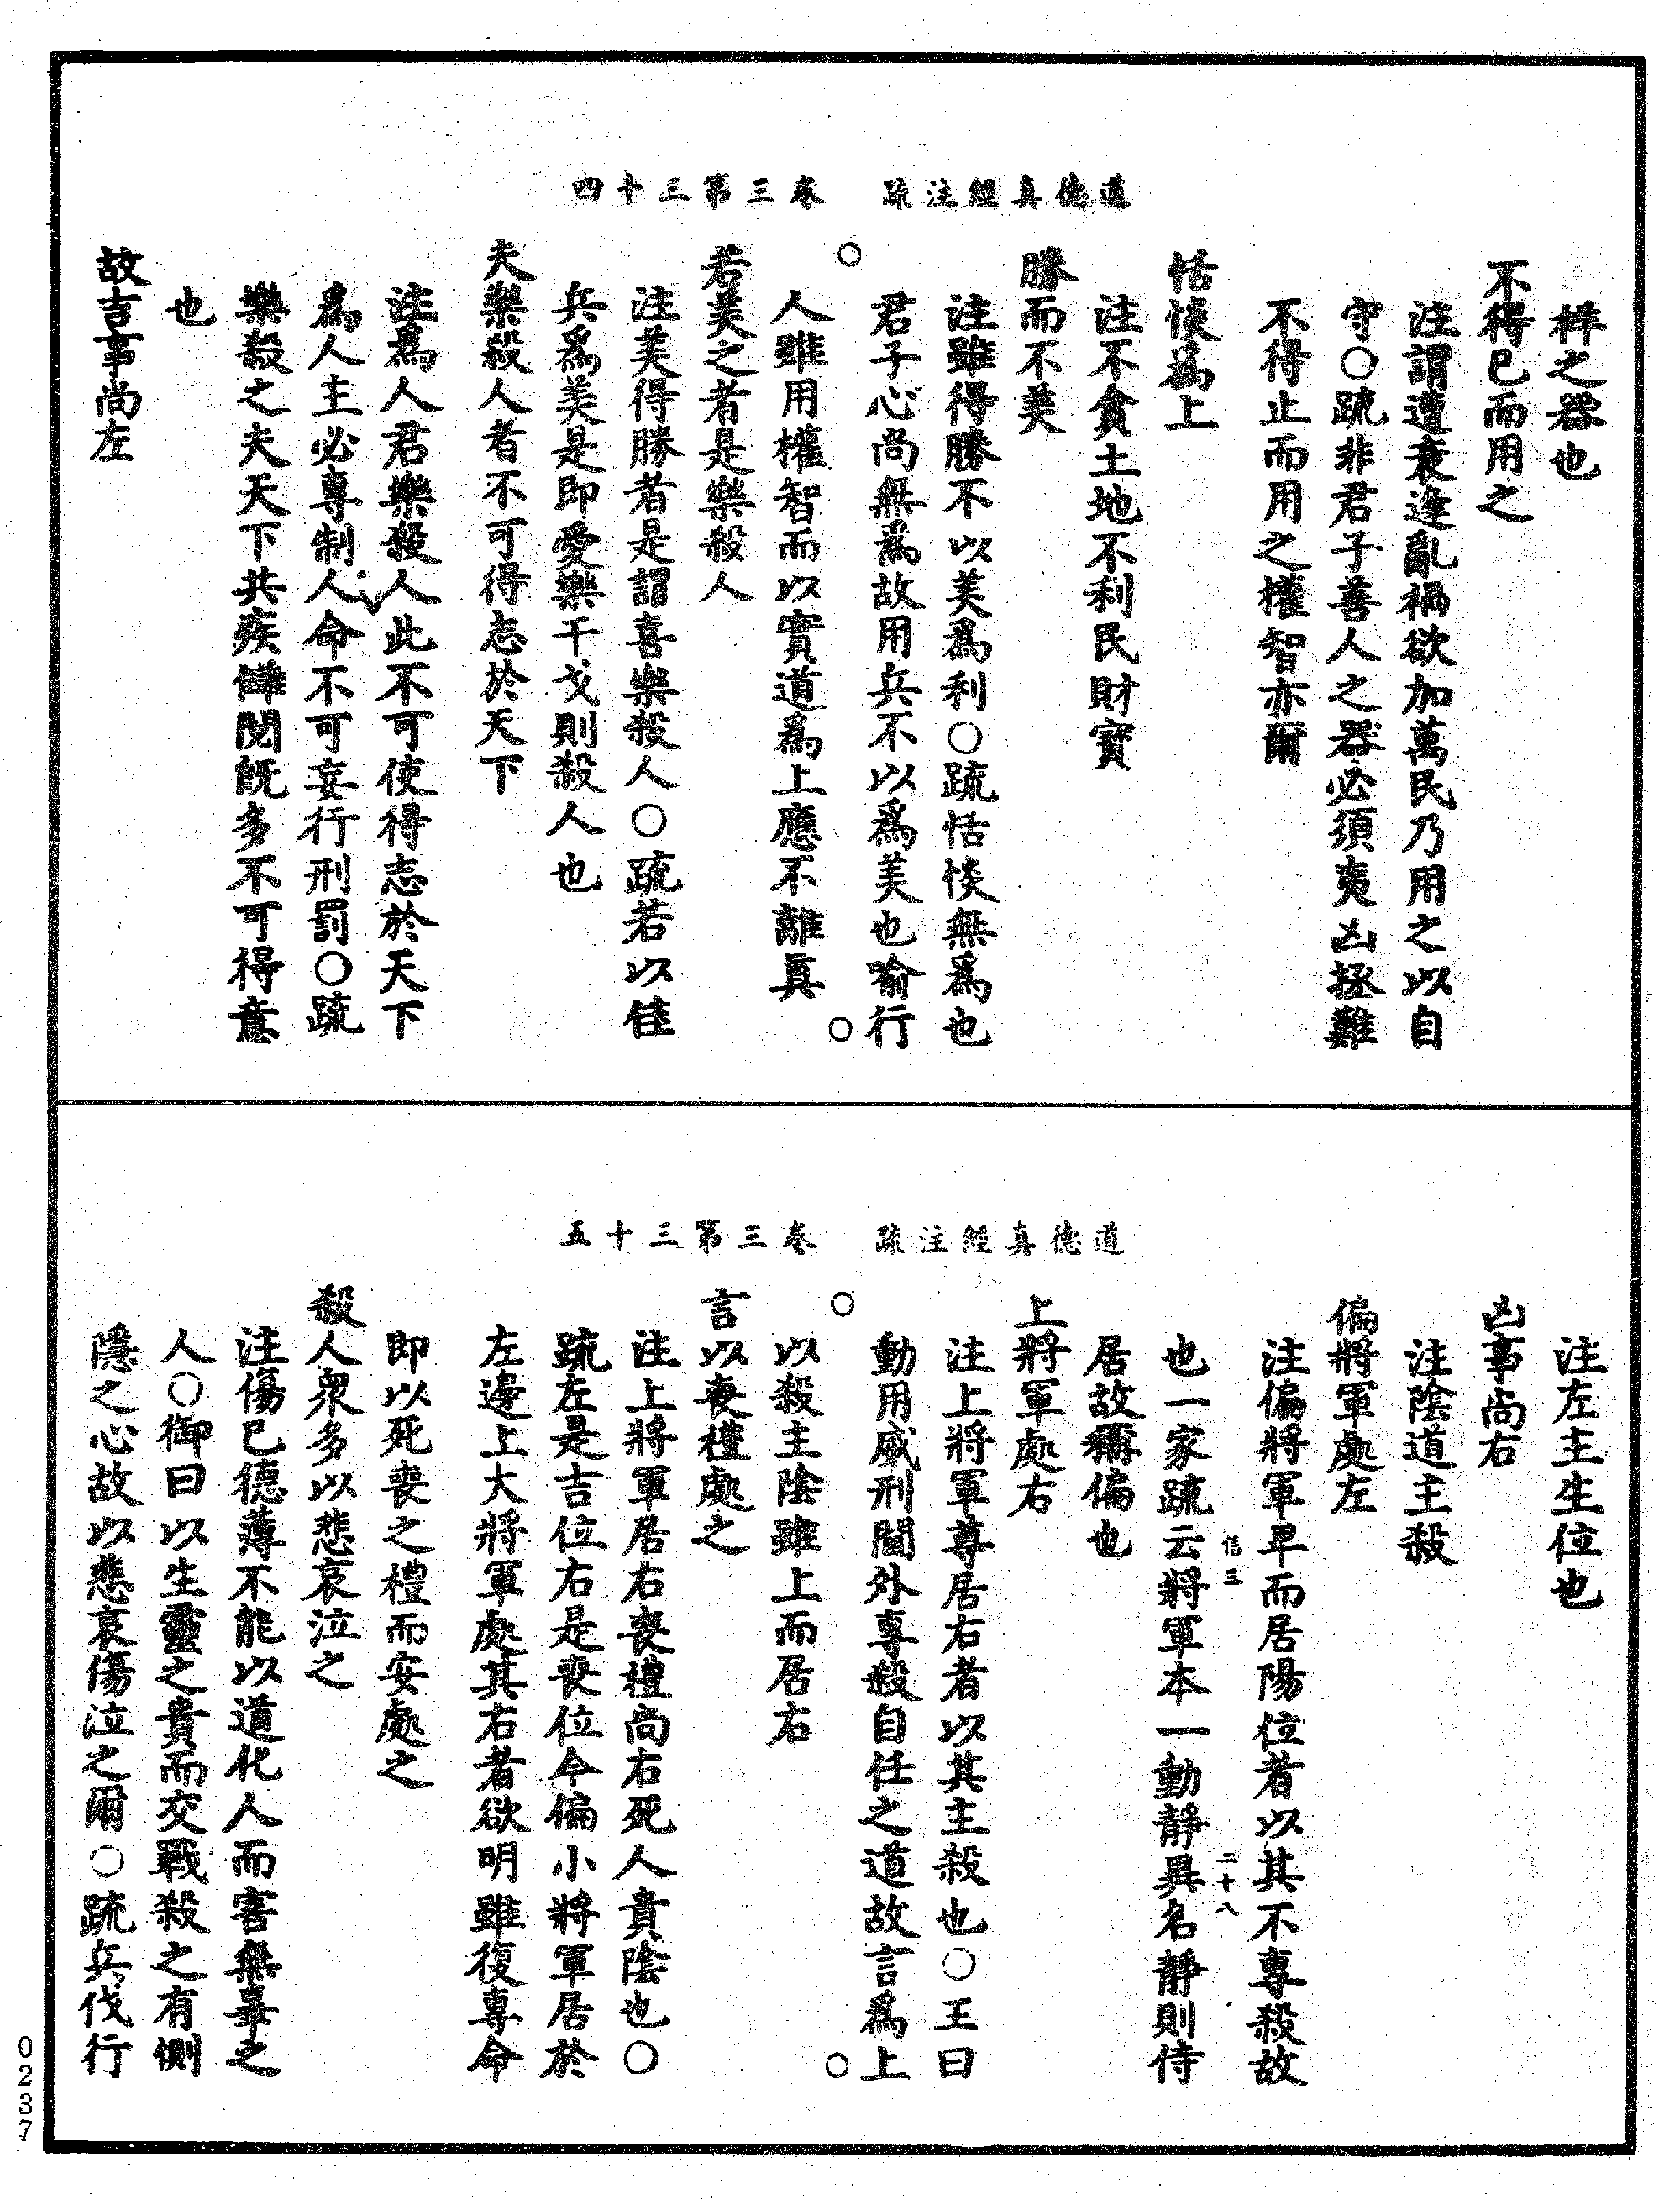 道德真經注疏　卷三第三十四
梓之器也
不得已而用之
注謂遭衰逢亂禍欲加萬民乃用之以自
守○疏非君子善人之器必須夷凶拯難
不得止而用之權智亦爾
恬惔爲上
注不貪土地不利民財寶
勝而不美
注雖得勝不以美爲利○疏恬惔無爲也
君子心尚無爲故用兵不以爲美也喻行
人雖用權智而以實道爲上應不離真
若美之者是樂殺人
注美得勝者是謂喜樂殺人○疏若以佳
兵爲美是即愛樂干戈則殺人也
夫樂殺人者不可得志於天下
注爲人君樂殺人此不可使得志於天下
爲人主必專制人命不可妄行刑罰○疏
樂殺之夫天下共疾讎閱既多不可得意
也
故吉事尚左
道德真經注疏　卷三第三十五
注左主生位也
凶事尚右
注陰道主殺
偏將軍處左
注偏將軍卑而居陽位者以其不專殺故
二十八
也一家疏云將軍本一動靜異名靜則侍
居故稱偏也
上將軍處右
注上將軍尊居右者以其主殺也○王曰
動用威刑閫外專殺自任之道故言爲上
以殺主陰雖上而居右
言以喪禮處之
注上將軍居右喪禮尚右死人貴陰也○
疏左是吉位右是喪位今偏小將軍居於
左邊上大將軍處其右者欲明雖復專命
即以死喪之禮而安處之
殺人衆多以悲哀泣之
注傷己德薄不能以道化人而害無辜之
人○御曰以生靈之貴而交戰殺之有惻
隱之心故以悲哀傷泣之爾○疏兵伐行
0237